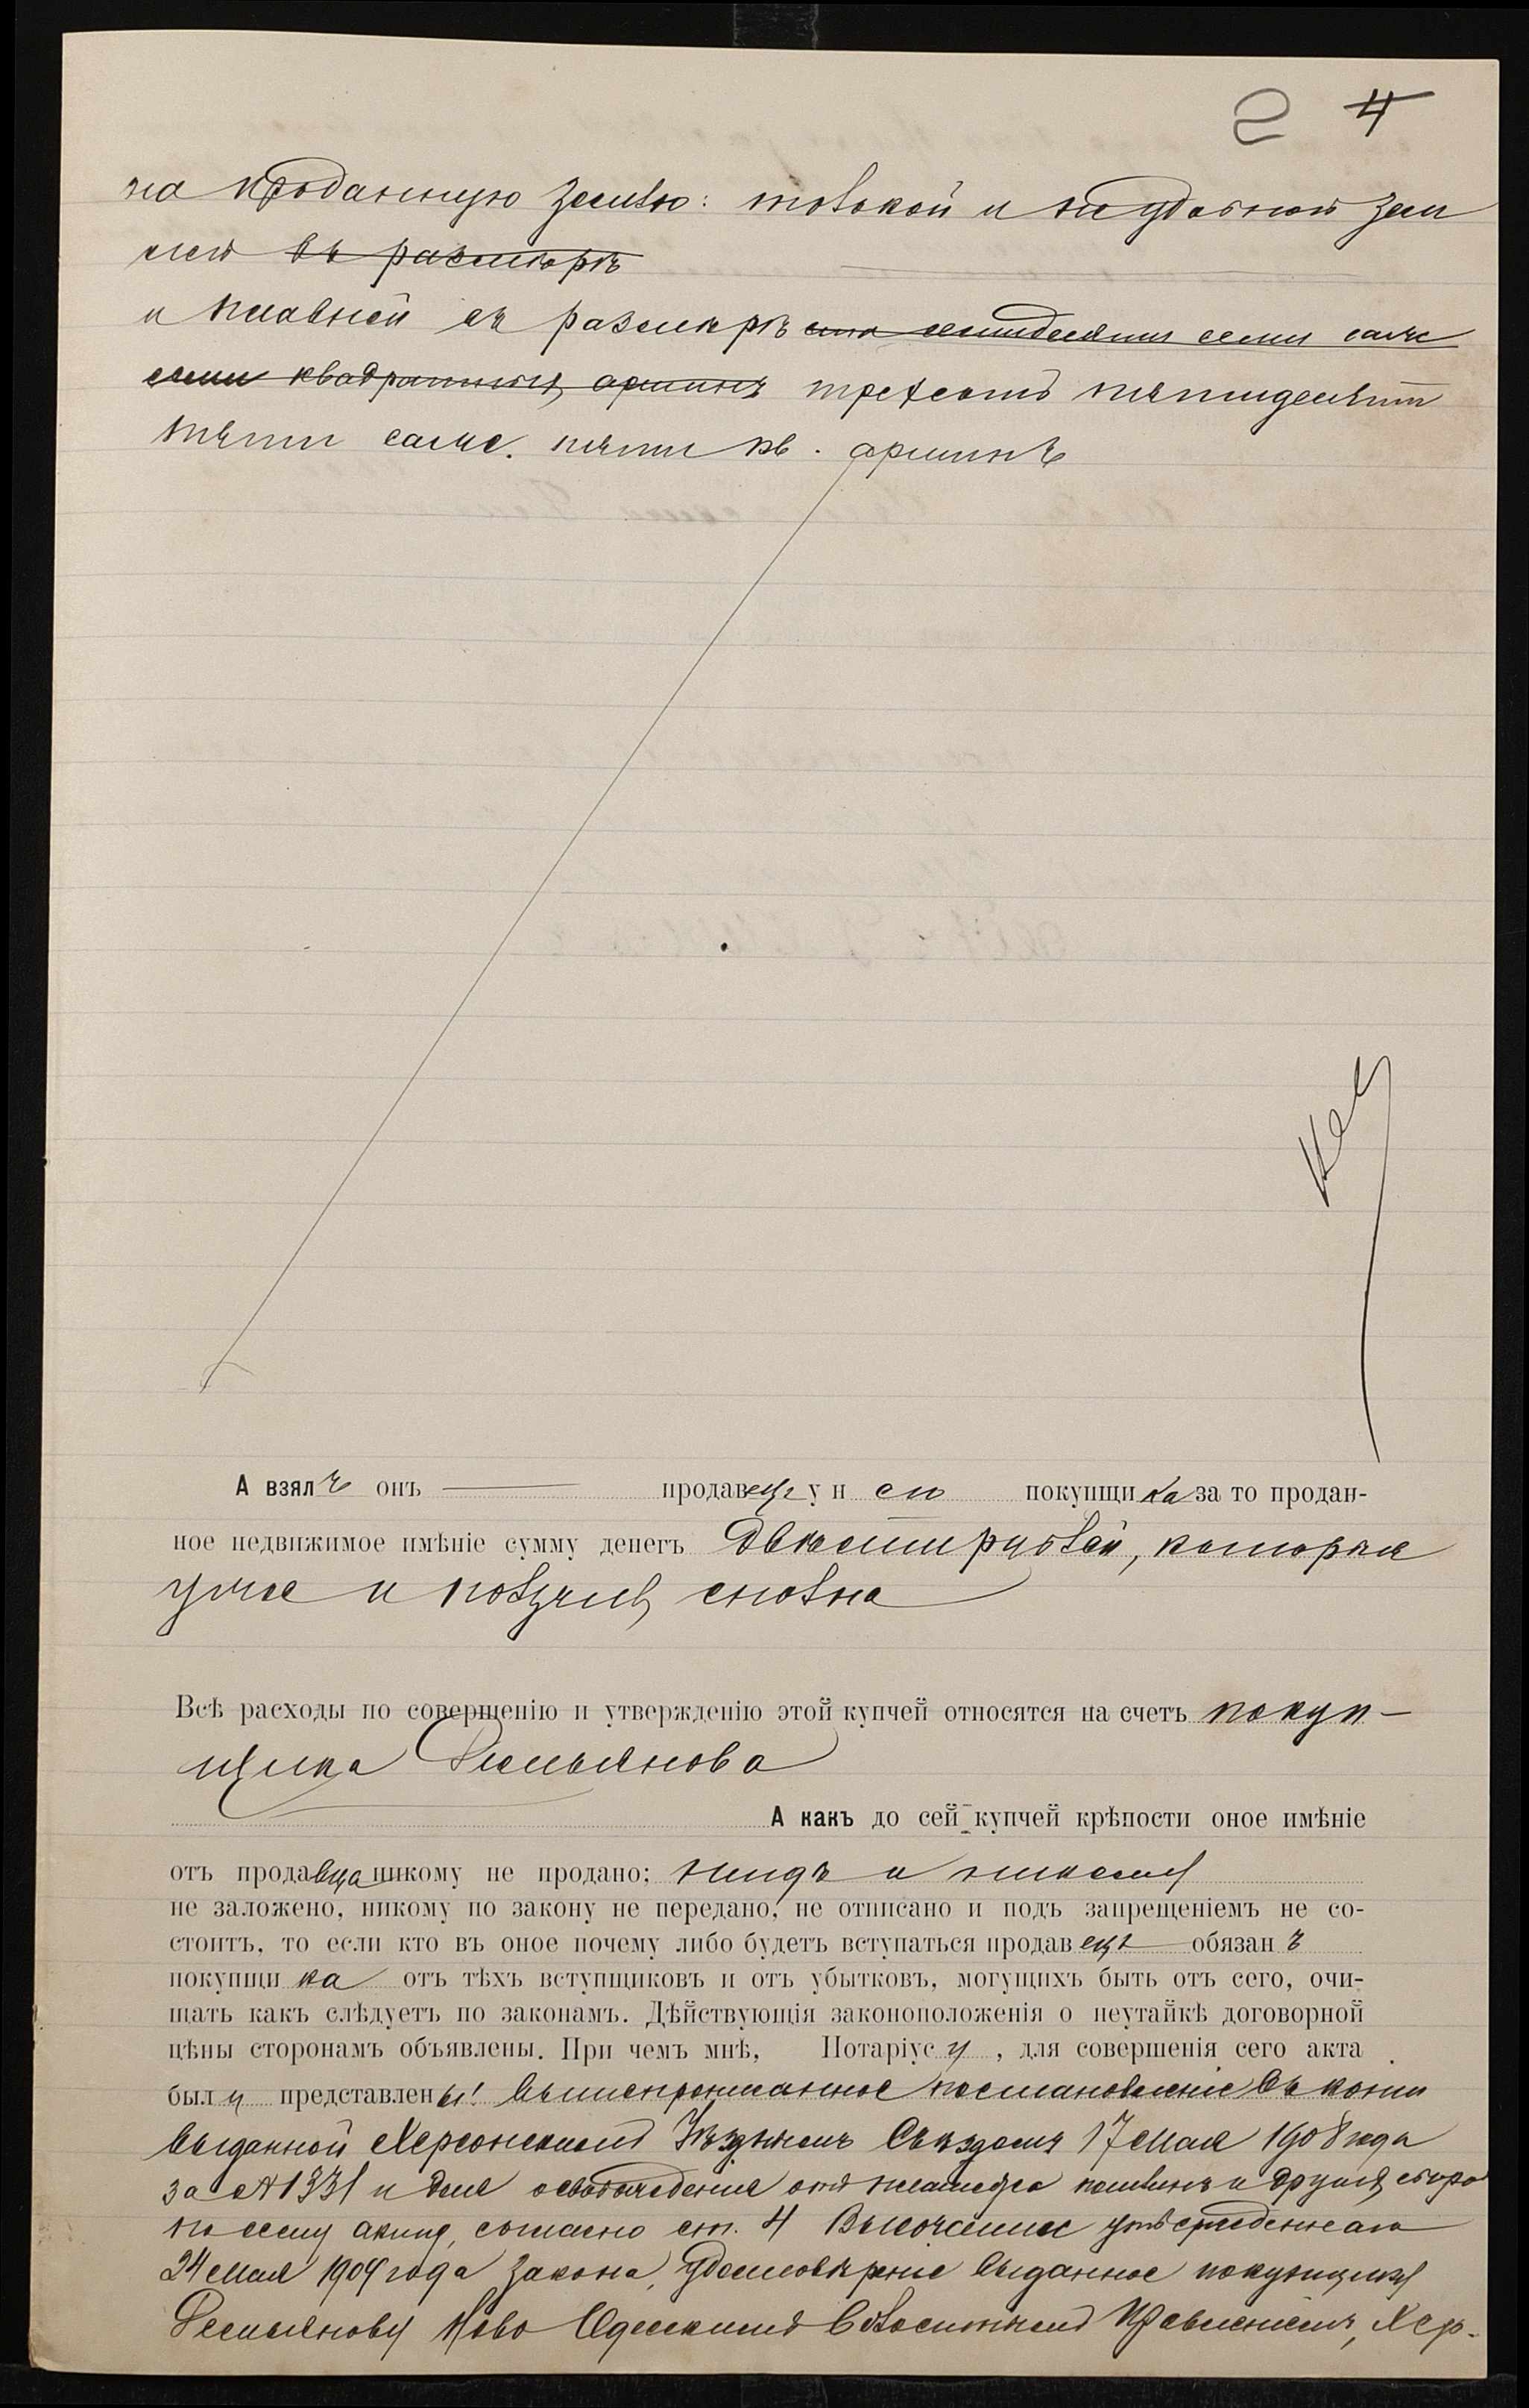 2 4
на проданную землю: толокой и неудобной зем
лей въ размѣрѣ
и плавней въ размѣрѣ ста семидесяти семи саж
семи квадратныхъ аршинъ трехсотъ пятидесяти
пяти саж. пяти кв. аршинъ
А взялъ онъ продавецъ у него покупщика за то продан-
ное недвижимое имѣніе сумму денегъ двѣсти рублей, которыя
уже и получилъ сполна
Всѣ расходы по совершенію и утвержденію этой купчей относятся на счетъ покуп-
щика Демьянова
А какъ до сей купчей крѣпости оное имѣніе
отъ продавца никому не продано; нигдѣ и никому
не заложено, никому по закону не передано, не отписано и подъ запрещеніемъ не со-
стоитъ, то если кто въ оное почему либо будетъ вступаться продавецъ обязанъ
покупщика отъ тѣхъ вступщиковъ и отъ убытковъ, могущихъ быть отъ сего, очи-
щать какъ слѣдуетъ по законамъ. Дѣйствующія законоположенія о неутайкѣ договорной
цѣны сторонамъ объявлены. При чемъ мнѣ, Нотаріусу, для совершенія сего акта
были представлены: вышепрописанное постановленіе въ копіи
выданной Херсонскимъ Уѣзднымъ Съѣздомъ 17 мая 1908 года
за № 1331 и для освобожденія отъ платежа пошлинъ и другихъ сборо
по сему акту, согласно ст. 4 Высочайше утвержденнаго
24 мая 1904 года закона, удостовѣреніе выданное покупщику
Демьянову Ново Одесскимъ Волостнымъ Правленіемъ, Хер-